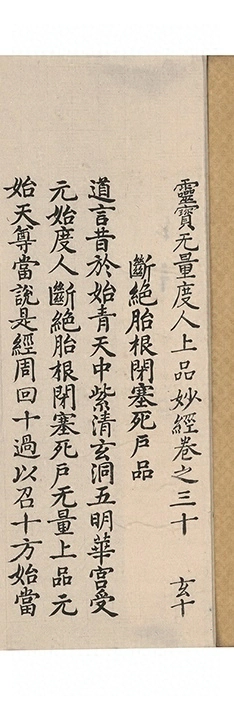 靈寶无量度人上品妙經卷之三十 玄十
斷絶胎根閉塞死戸品
道言昔於始青天中紫清玄洞五明華宮受
元始度人斷絶胎根閉塞死戸无量上品元
始天尊當說是經周回十過以召十方始當